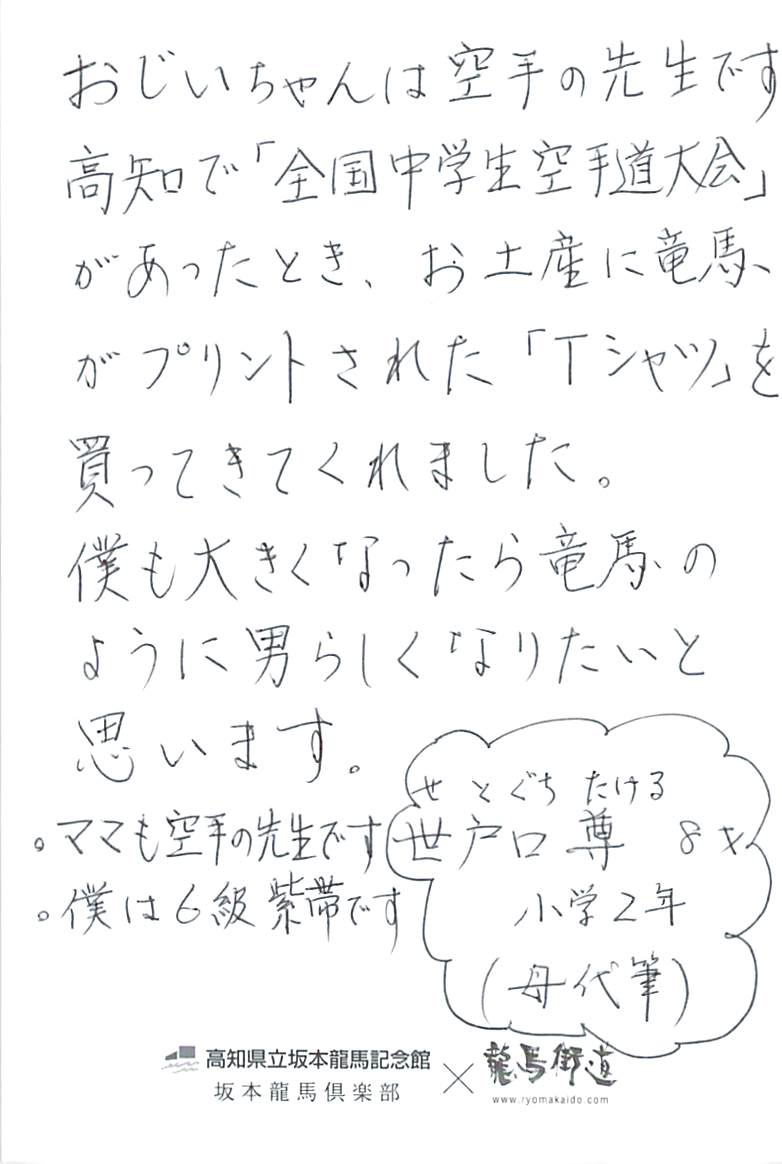 おじいちゃんは空手の先生です
高知で「全国中学生空手道大会」
があったとき、お土産に竜馬
がプリントされた「Tシャツ」を
買ってきてくれました。
僕も大きくなったら竜馬の
ように男らしくなりたいと
思います。
。ママも空手の先生です
。僕は6級紫帯です
せとぐち たける
世戸口 尊 8才
小学2年
(母代筆)
高知県立坂本龍馬記念館
坂本龍馬倶楽部
×
龍馬街道
www.ryomakaido.com